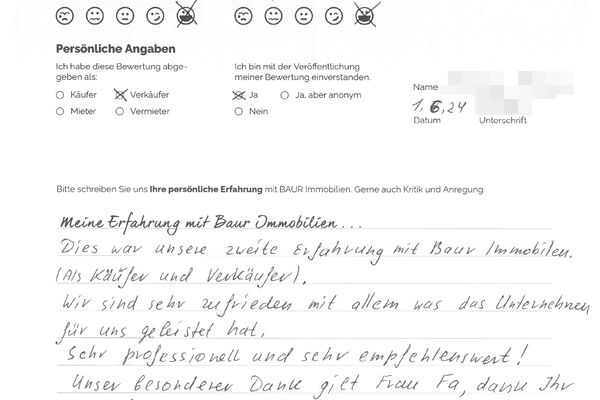 Persönliche Angaben
Ich habe diese Bewertung abge-
geben als:
Käufer
Verkäufer
Mieter
Vermieter
Ich bin mit der Veröffentlichung
meiner Bewertung einverstanden.
Ja
Ja, aber anonym
Nein
Name
1.6.24
Datum
Unterschrift
Bitte schreiben Sie uns Ihre persönliche Erfahrung mit BAUR Immobilien. Gerne auch Kritik und Anregung
Meine Erfahrung mit Baur Immobilien...
Dies war unsere zweite Erfahrung mit Baur Immobilen.
(Als Käufer und Verkäufer).
Wir sind sehr zufrieden mit allem was das Unternehmen
für uns geleistet hat.
Sehr professionell und sehr empfehlenswert!
Unser besonderer Dank gilt Frau Fa, dank Ihr